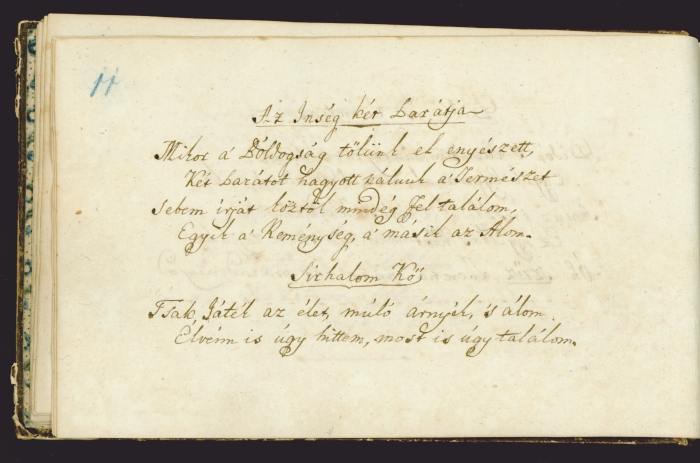 11
Az Inség két barátja
Mikor á Bóldogság tölünk el enyészett,
Két barátot hagyott nálunk á Természet
Sebem írját köztök mindég fel találom,
Egyik á Reménység, á másik az Álom.
Sirhalom Kő
Tsak Játék az élet, múló árnyék, 's álom.
Elvénn is úgy hittem, most is úgy találom.